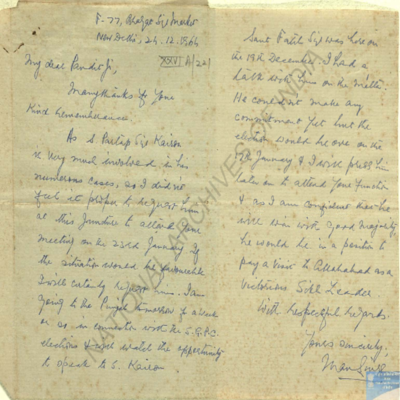 F-77, Bhagat Singh Market
New Delhi, 24.12.1964
XXVI A/22
My dear Pandit Ji,
Many thanks for your
kind remembrance.
As S Partap Singh Kairon
is very much involved in his
numerous cases, so I did not
feel it proper to request him
at this juncture to attend your
meeting on the 23rd January. If
the situation would be favourable
I will certainly request him. I am
going to the Punjab tomorrow for a week
or so, in connection with the S.G.P.C.
elections & will watch the opportunity
to speak to S. Kairon.
Sant Fateh Singh was here on
the 18th December. I had a
talk with him on the matter.
He could not make any
commitment yet but the
election would be over on the
January & I will press him
later on to attend your function
& as I am confident that he
will win with good majority
he would be in a position to
pay a visit to Allahabad as a
victorious Sikh Leader.
With respectful regards.
Yours sincerely,
Man Singh
NATIONAL ARCHIVES OF INDIA